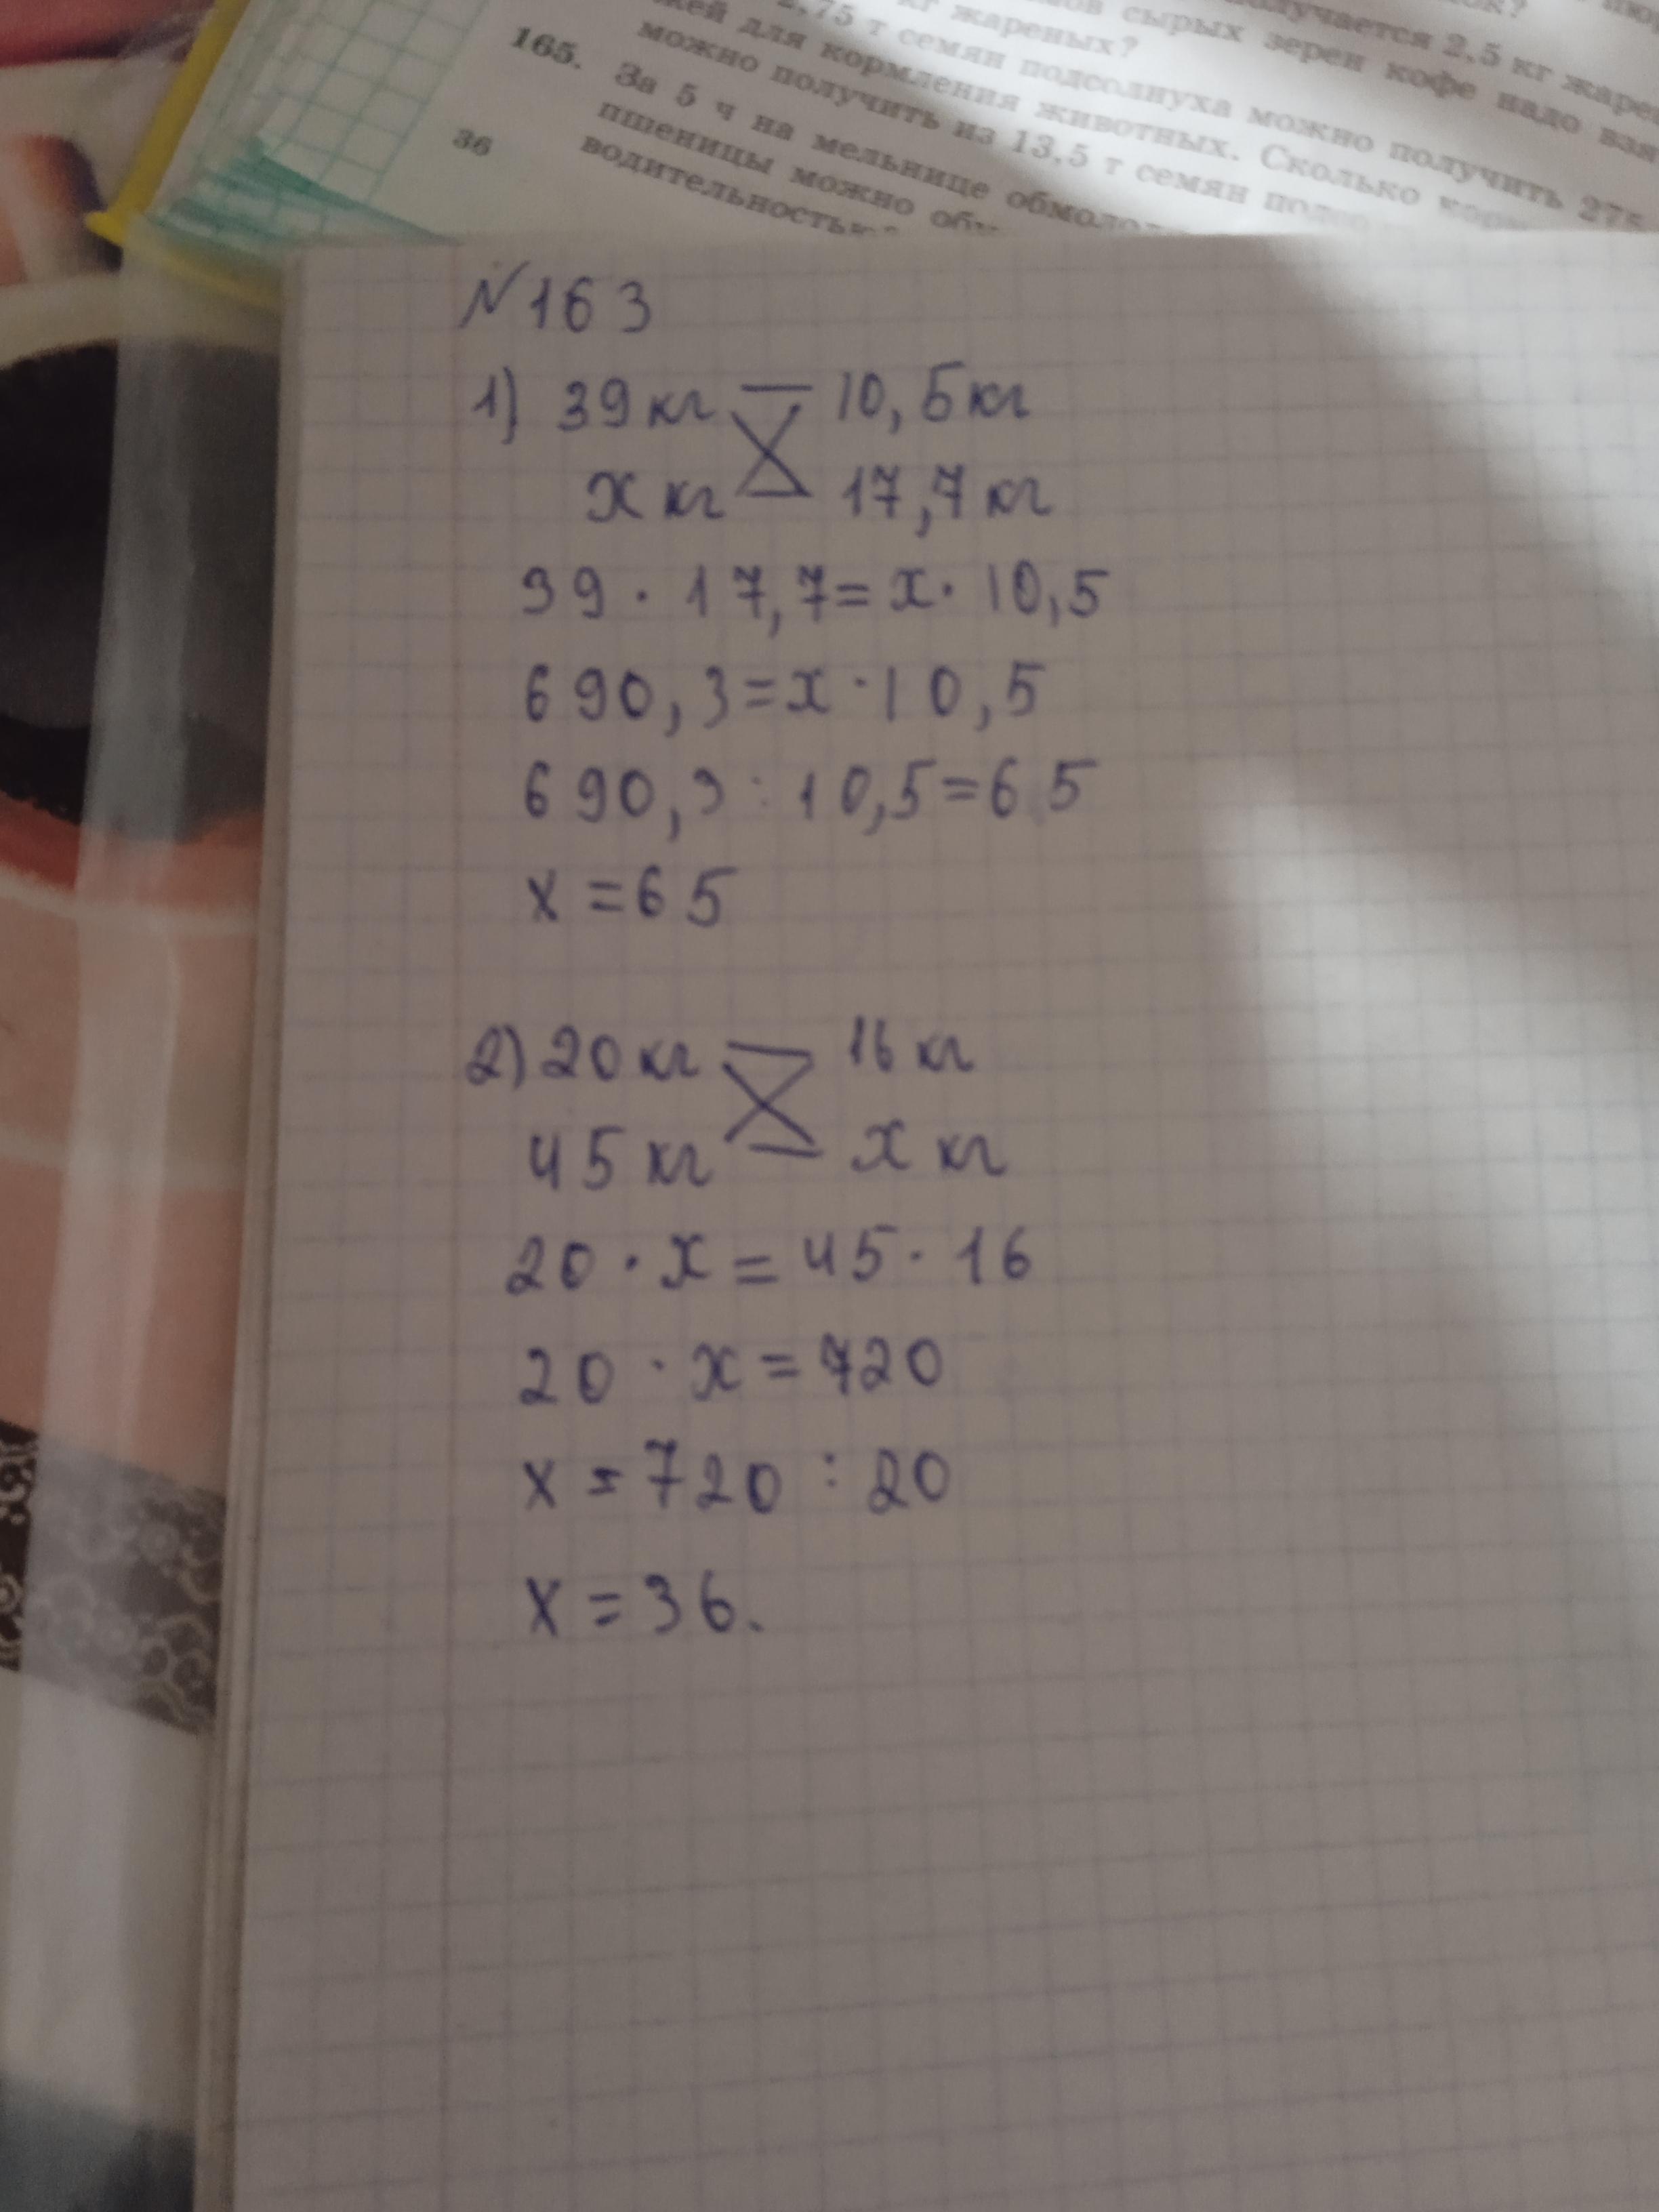 получается 2,5 кг жарен
сырых зерен кофе надо взя
кг жареных?
2,75 т семян подсолнуха можно получить 275
для кормления животных. Сколько
можно получить из 13,5 т семян
165. За 5 ч на мельнице обмолот
пшеницы можно
водительностью
36
№163
1) 39 кг — 10,5 кг
x кг — 17,7 кг
39 · 17,7 = x · 10,5
690,3 = x · 10,5
690,3 : 10,5 = 65
x = 65
2) 20 кг — 16 кг
45 кг — x кг
20 · x = 45 · 16
20 · x = 720
x = 720 : 20
x = 36.